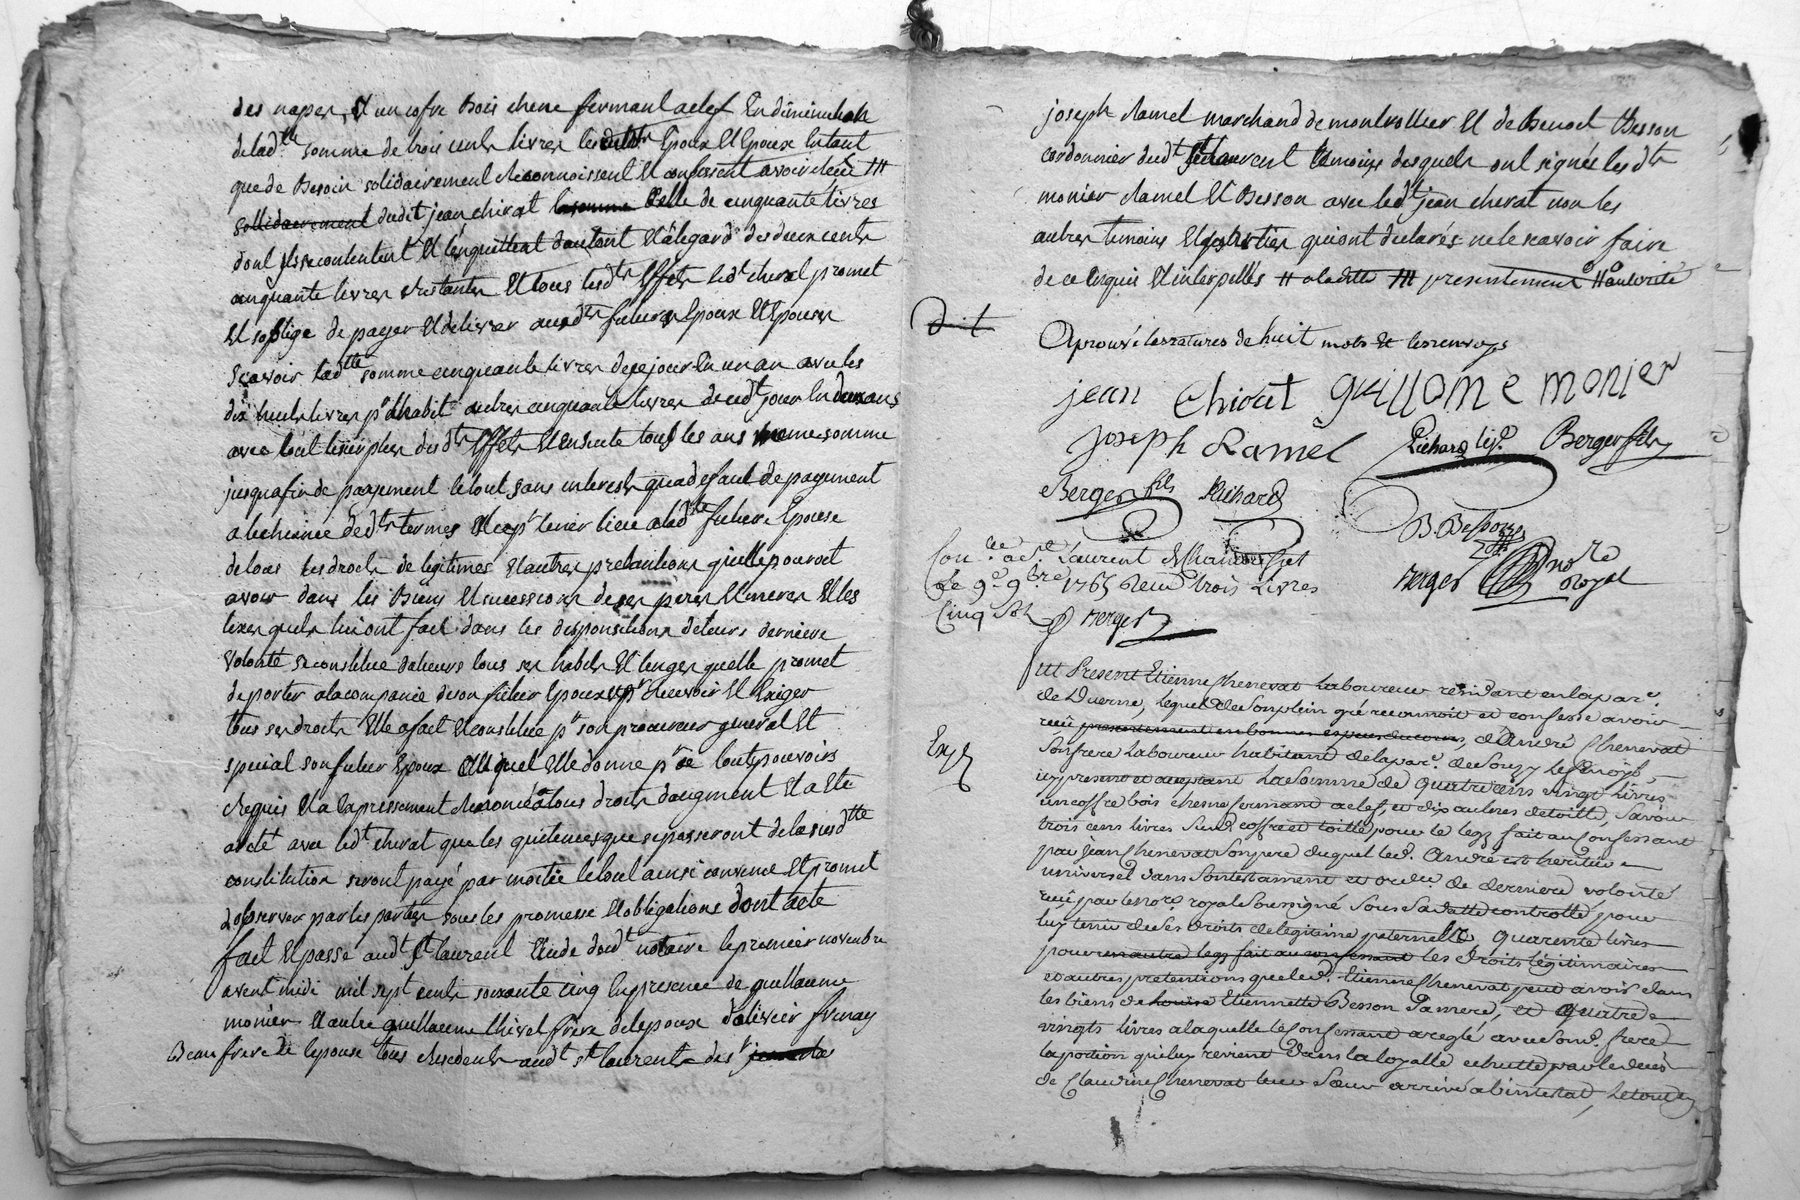 des napes, Et un cofre Bois chene fermant aclef En diminution
de lad.tte somme de trois cents livres lesdits Epoux Et Epouze Entant
que de Besoin solidairement Reconnoissent Et confessent avoir Receu ///
sollidairement dudit jean chirat la somme Celle de cinquante livres
dont ils se contentent Et l'enquittent dautant Et alegard des deux cents
cinquante livres restantes Et tous lesdts Effets led.t cherat promet
Et soblige de payer Et delivrer ausdts futurs Epoux Et Epouse
Scavoir lad.tte somme cinquante livres de ce jour En un an avec les
dix huit livres pr lhabit autres cinquante livres de cedt jour En deux ans
avec tout lesimples desdts Effets Et Ensuite tous les ans meme somme
jusqua fin de payement le tout sans interests qua defaut de payement
alecheance dedts termes Et ce pr tenir lieu alad.tte future Epouse
de tous ses droits de legitimes Et autres pretentions quelle pouroit
avoir dans les Biens Et successions de ses peres Et meres Et les
lexes quils lui ont fait dans les dispositions de leurs derniere
volonté se constitue dalieurs tous ses habits Et linges quelle promet
de porter ala companie de son futur Epoux Et pr Recevoir Et Exiger
tous ses droits Elle a fait Et constitue pr son procureur general Et
special son futur Epoux Auquel Elle donne pr ce tout pouvoirs
Requis Et a Expressement Renoncé a tous droits daugment Et a Ete
aresté avec led.t cherat que les quitences que se passeront de la susd.tte
constitution seront payé par moitié le tout ainsi convenu Et promit
dobserver par les parties sous les promesse Et obligations dont acte
fait Et passé aud.t St laurent Etude dud.t notaire le premier novembre
avent midi mil sept cents soixante cinq En presence de guillaume
monier Et autre guillaume Chirat frere de lepoux dolivier frenay
Beaufrere de lepouse tous Residents aud.t st laurent des.r
joseph Ramel marchand de montrottier Et de Benoit Besson
cordonnier dud.t St laurent temoins desquels ont signée lesdts
monier Ramel Et Besson avec led.t jean cherat non les
autres temoins Et parties qui ont declarés ne le scavoir faire
de ce Enquis Et interpellés // aladitte /// presentement //° autorité
Aprouvé les ratures de huit mots Et les renvoys
jean Chirat guillome monier
joseph Ramel Richard tis.d Berger fils
Berger fils Richard
B. Besson
Con.lé a St Laurent de Chamousset
Le 9e 9bre 1765 Reçu trois Livres
Cinq sols Berger
Berger no.re royal
/// Present Etienne Chenevat Laboureur residant en la par.e
de Duerne, lequel de son plein gré reconnoit et confesse avoir
reçu presentement en bonnes especes du cours, d'André Chenevat
Exp.
son frere Laboureur habitant de la par.e de Souzy
icy present et acceptant La Somme de quatre cens vingt livres
un coffre bois chesne fermant a clef, et dix aulnes de toille, Savoir
trois cens livres Sud. coffre et toille pour le legs fait au Confessant
par jean Chenevat son pere duquel led. André est heritier
universel dans Son testament et ord.ce de derniere volonté
reçû par le no.re royal Soussigné Sous Sa datte controllé, pour
luy tenir de ses droits de legitime paternelle, quarente livres
pour un autre legs fait au confessant les droits legitimaires
et autres pretentions que led. Etienne Chenevat peut avoir dans
les biens de Etiennette Besson Sa mere, et quatre
vingts livres a laquelle le confessant a reglé avec Sond. frere
la portion qui luy revient dans la loyalle echutte par le decés
de Claudine Chenevat leur Sœur arrivé ab intestat, le tout